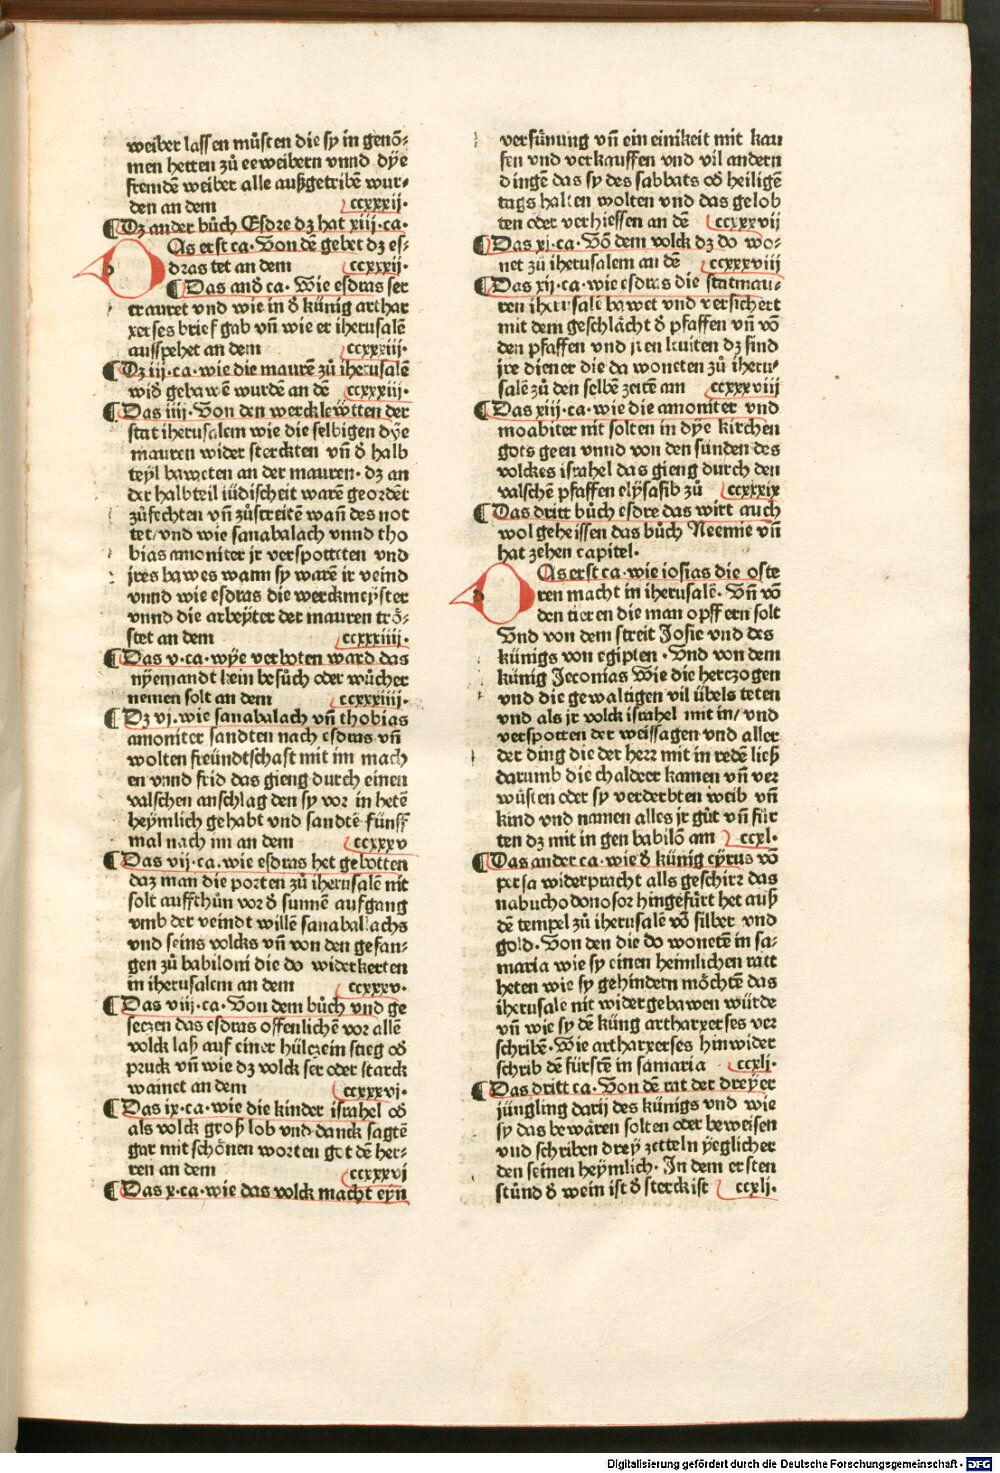 weiber lassen můsten die sy in genō⸗
men hetten zů eeweibern vnnd dye
fremdē weiber alle außgetribē wur⸗
den an dem ccxxxij.
¶Dz ander bůch Esdre dz hat xiij.ca.
DAs erst ca. Von dē gebet dz es⸗
dras tet an dem ccxxxij.
¶Das and̄ ca. Wie esdras ser
trauret vnd wie in d̄ künig arthar
xerses brief gab vn̄ wie er iherusalē
ausspehet an dem ccxxxiij.
¶Dz iij.ca.wie die maurē zů iherusalē
wid̄ gebawē wurdē an dē ccxxxiij.
¶Das iiij. Von den wercklewtten der
stat iherusalem wie die selbigen dye
mauren wider sterckten vn̄ d̄ halb
teyl baweten an der mauren. dz an
der halbteil iüdischeit warē geordēt
zůfechten vn̄ zůstreitē wan̄ des not
tet/vnd wie sanabalach vnnd tho
bias amoniter jr verspotteten vnd
jres bawes wann sy warē ir veind
vnnd wie esdras die werckmeyster
vnnd die arbeyter der mauren trö⸗
stet an dem ccxxxiiij.
¶Das v.ca.wye verboten ward das
nyemandt kein besůch oder wůcher
nemen solt an dem ccxxxiiij.
¶Dz vj.wie sanabalach vn̄ thobias
amoniter sandten nach esdras vn̄
wolten freündtschaft mit im mach
en vnnd frid das gieng durch einen
valschen anschlag den sy vor in hetē
heymlich gehabt vnd sandtē fünff
mal nach im an dem ccxxxv
¶Das vij.ca.wie esdras het gebotten
daz man die porten zů iherusalē nit
solt auffthůn vor d̄ sunnē aufgang
vmb der veindt willē sanaballachs
vnd seins volcks vn̄ von den gefan⸗
gen zů babiloni die do widerkerten
in iherusalem an dem ccxxxv.
¶Das viij.ca. Von dem bůch vnd ge
seczen das esdras offenlichē vor allē
volck laß auf einer hülczein stieg od̄
pruck vn̄ wie dz volck ser oder starck
wainet an dem ccxxxvj.
¶Das ix.ca.wie die kinder israhel od̄
als volck groß lob vnd danck sagtē
gar mit schönen worten got dē her⸗
ren an dem ccxxxvj
¶Das x.ca.wie das volck macht eyn
versünung vn̄ ein einikeit mit kau
fen vnd verkauffen vnd vil andern
dingē das sy des sabbats od̄ heiligē
tags halten wolten vnd das gelob
ten oder verhiessen an dē ccxxxvij
¶Das xj.ca. Vō dem volck dz do wo⸗
net zů iherusalem an dē ccxxxviii
¶Das xij.ca.wie esdras die statmau⸗
ren iherusalē bawet vnd versichert
mit dem geschlächt d̄ pfaffen vn̄ vō
den pfaffen vnd jren leuiten dz sind
jre diener die da woneten zů iheru⸗
salē zů den selbē zeitē am ccxxxviii
¶Das xiij.ca.wie die amoniter vnd
moabiter nit solten in dye kirchen
gots geen vnnd von den sünden des
volckes israhel das gieng durch den
valschē pfaffen elysasib zů ccxxxix
¶Das dritt bůch esdre das wirt auch
wol geheissen das bůch Neemie vn̄
hat zehen capitel.
DAs erst ca.wie iosias die oste
ren macht in iherusalē. Vn̄ vō
den tieren die man opffern solt
Vnd von dem streit Josie vnd des
künigs von egipten. Vnd von dem
künig Jeconias Wie die herczogen
vnd die gewaltigen vil übels teten
vnd als jr volck israhel mit in/vnd
verspotten der weissagen vnd aller
der ding die der herr mit in redē ließ
darumb die chaldeer kamen vn̄ ver
wüsten oder sy verderbten weib vn̄
kind vnd namen alles jr gůt vn̄ für
ten dz mit in gen babilō am ccxl.
¶Das ander ca.wie d̄ künig cyrus vō
persa widerpracht alls geschirr das
nabuchodonosor hingefürt het auß
dē tempel zů iherusalē vō silber vnd
gold. Von den die do wonetē in sa⸗
maria wie sy einen heimlichen ratt
heten wie sy gehindern möchtē das
iherusalē nit wider gebawen würde
vn̄ wie sy dē küng artharxerses ver
schribē. Wie artharxerses hinwider
schrib dē fürstē in samaria ccxlj.
¶Das dritt ca. Von dē rat der dreyer
jüngling darij des künigs vnd wie
sy das bewären solten oder beweisen
vnd schriben drey zetteln yeglicher
den seinen heymlich. In dem ersten
stůnd d̄ wein ist d̄ sterckist ccxlj.
Digitalisierung gefördert durch die Deutsche Forschungsgemeinschaft - DFG